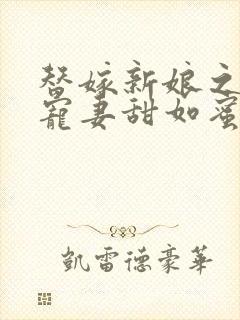 替嫁新娘之
寵妻甜如蜜
凱雷德豪華